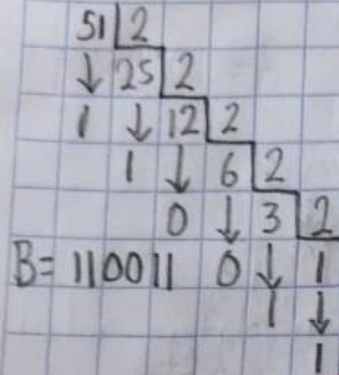 51 2
↓ 25 2
1 ↓ 12 2
1 ↓ 6 2
0 ↓ 3 2
B= 110011 0 ↓ 1
1 ↓
1